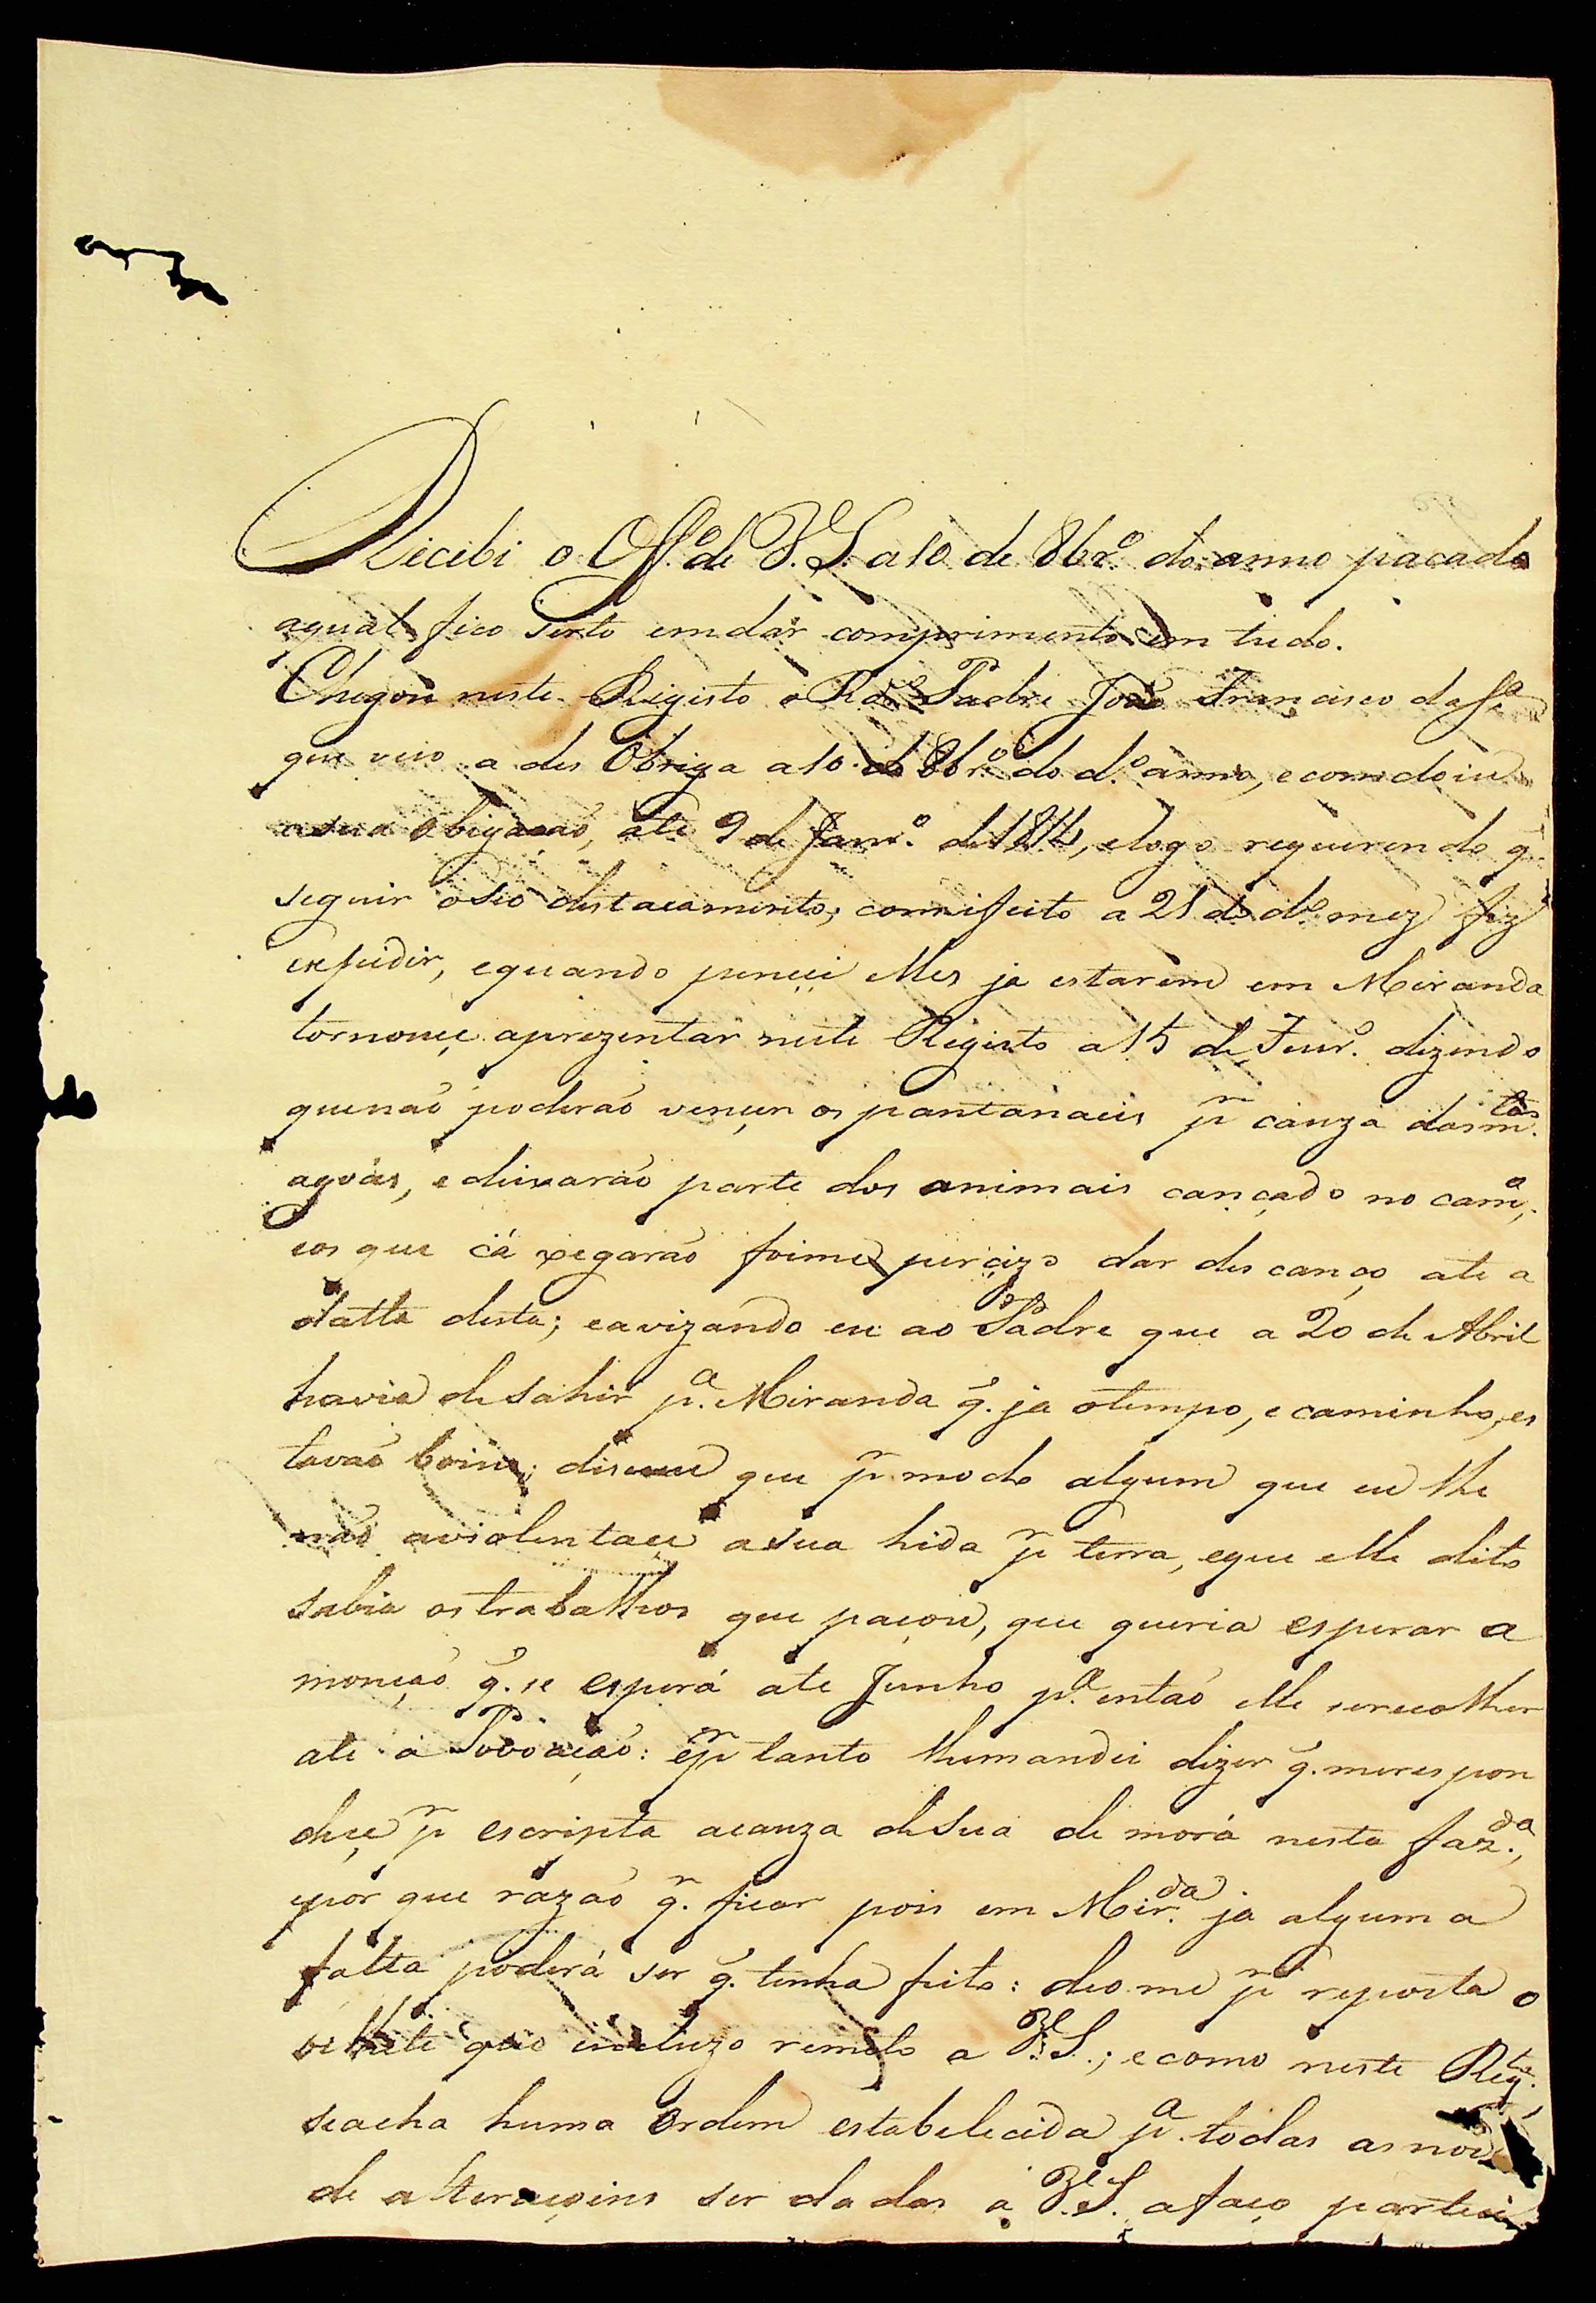 Recebi o Off.º de V. S. a 10 de 8br.º do anno pacado
aqual fico serto emdar comprimento em tudo.
Chegou neste Rigisto o Rd.º Padre João Francisco da S.ª
que veio a des Obriga a 10 de 8br.º do d.º anno, e
a sua Obigação, ate 9 de Janr.º de 1814, elogo requerendo q.
seguir o seo destacamento; comifeito a 21 do d.º mez fiz
expidir, equando pencei elles ja estarem em Miranda
tornouce aprezentar neste Rigisto a 15 de Fevr.º dizendo
quenaõ poderaõ vençer os pantanaeis pr cauza das m.tas
agoas, e deixaraõ parte dos animais cançado no cam.º,
eos que cá xegaraõ foime perçizo dar des canço ate a
datta desta; eavizando eu ao Padre que a 20 de Abril
havia de sahir p.ª Miranda q̃. ja otempo, e caminho, es
tavaõ boins; diseme que pr modo algum que eu lhe
naõ aviolentace a sua hida pr terra, eque elle dito
sabia os trabalhos que paçou, que queria esperar a
monçaõ q̃. se espera ate Junho p.ª entaõ elle serecolher
ate a Povoaçaõ: e pr tanto lhemandei dizer q̃. merespon
deçe pr escripta acauza desua de morá nesta faz.da,
epor que razaõ q.r ficar pois em Mir.da ja alguma
falta poderá ser q̃. tenha feito: deo me pr reposta o
bilhete q̃ incluzo remeto a V. S.; ecomo neste Reg.to
seacha huma Ordem estabelecida p.ª todas as
de alteraçoins ser dadas a V. S. afaço